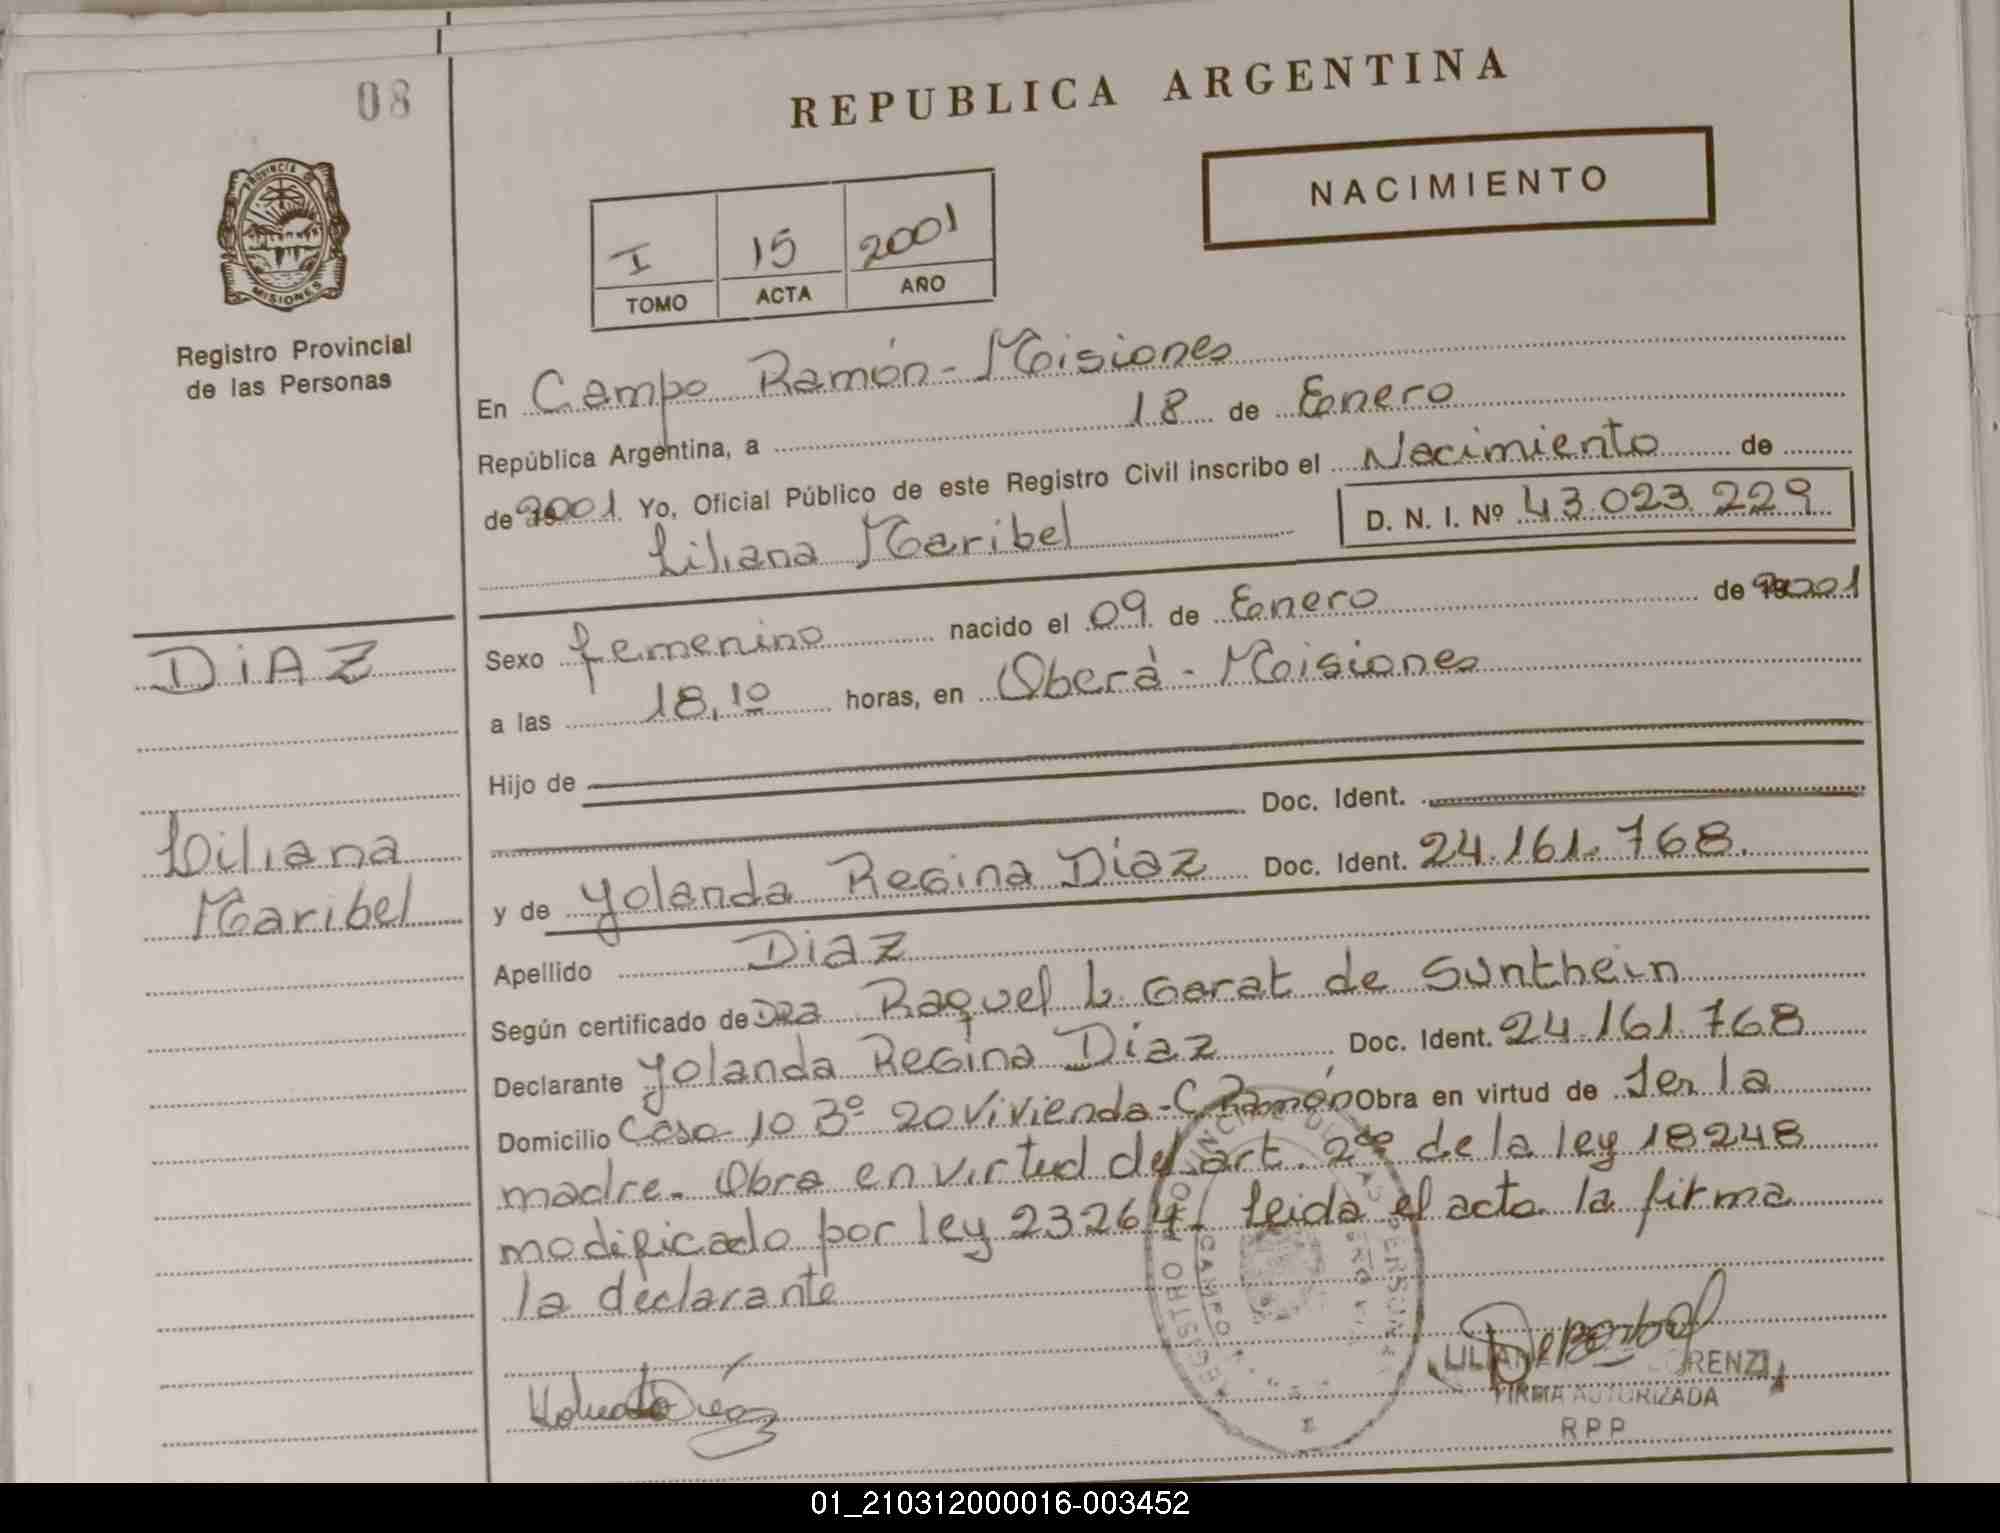 08
REPUBLICA ARGENTINA
NACIMIENTO
PROVINCIA DE
MISIONES
Registro Provincial
de las Personas
I 15 2001
TOMO ACTA AÑO
En Campo Ramón - Misiones
República Argentina, a 18 de Enero
de 2001 Yo, Oficial Público de este Registro Civil inscribo el Nacimiento de
Liliana Maribel D. N. I. Nº 43.023.229
DIAZ
Liliana
Maribel
Sexo femenino nacido el 09 de Enero de 2001
a las 18,10 horas, en Oberá - Misiones
Hijo de
Doc. Ident.
y de Yolanda Regina Díaz Doc. Ident. 24.161.768.
Apellido Diaz
Según certificado de DRA Raquel L. Garat de Sunthein
Declarante Yolanda Regina Díaz Doc. Ident. 24.161.768
Domicilio Casa 10 Bº 20 Vivienda - C. Ramón Obra en virtud de Ser la
madre. Obra en virtud del art. 2do de la ley 18248
modificado por ley 23264. Leida el acta la firma
la declarante
RENZI
FIRMA AUTORIZADA
RPP
01_210312000016-003452